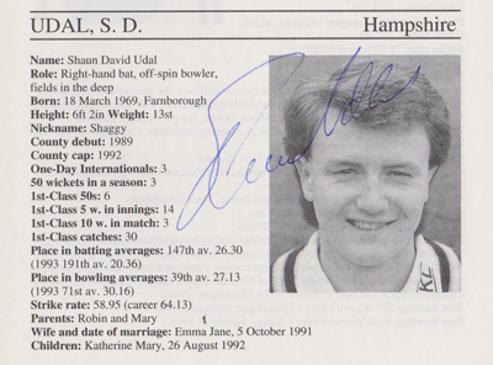 UDAL, S. D. Hampshire
Name: Shaun David Udal
Role: Right-hand bat, off-spin bowler,
fields in the deep
Born: 18 March 1969, Farnborough
Height: 6ft 2in Weight: 13st
Nickname: Shaggy
County debut: 1989
County cap: 1992
One-Day Internationals: 3
50 wickets in a season: 3
1st-Class 50s: 6
1st-Class 5 w. in innings: 14
1st-Class 10 w. in match: 3
1st-Class catches: 30
Place in batting averages: 147th av. 26.30
(1993 191th av. 20.36)
Place in bowling averages: 39th av. 27.13
(1993 71st av. 30.16)
Strike rate: 58.95 (career 64.13)
Parents: Robin and Mary
Wife and date of marriage: Emma Jane, 5 October 1991
Children: Katherine Mary, 26 August 1992
Shaun Udal